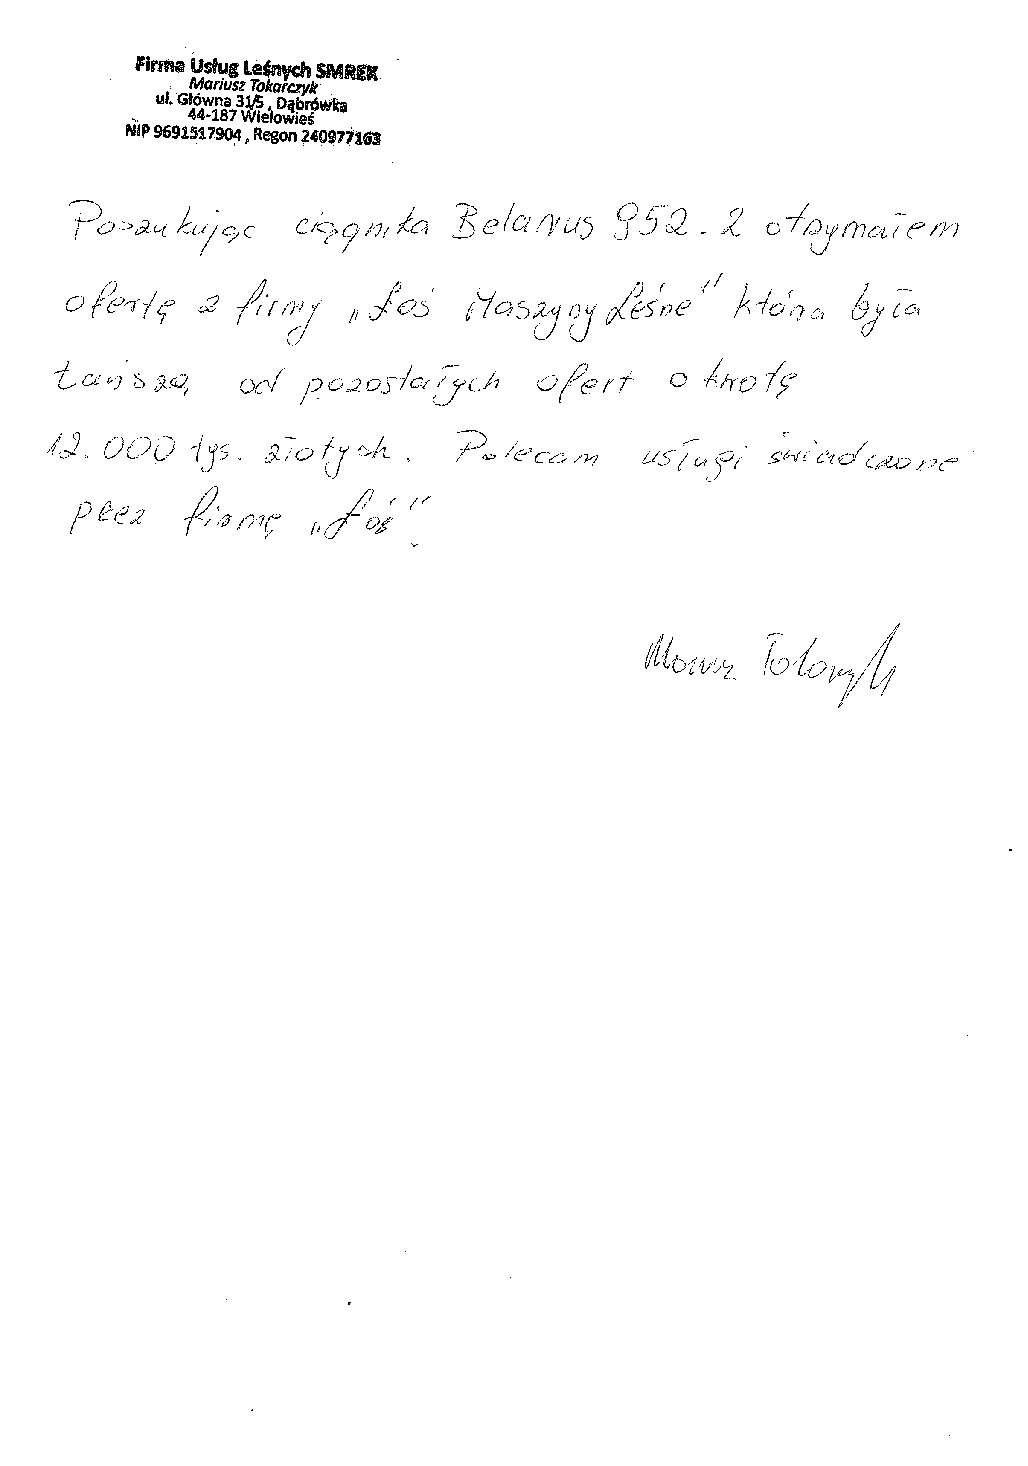 Firma Usług Leśnych SMREK
Mariusz Tokarczyk
ul. Główna 31/5 , Dąbrówka
44-187 Wielowieś
NIP 9691517904 , Regon 240977163
Poszukując ciągnika Belarus 952.2 otrzymałem
ofertę z firmy „Łoś Maszyny Leśne” która była
tańsza, od pozostałych ofert o kwotę
12.000 tys. złotych. Polecam usługi świadczone
przez firmę „Łoś”.
Mariusz Tokarczyk